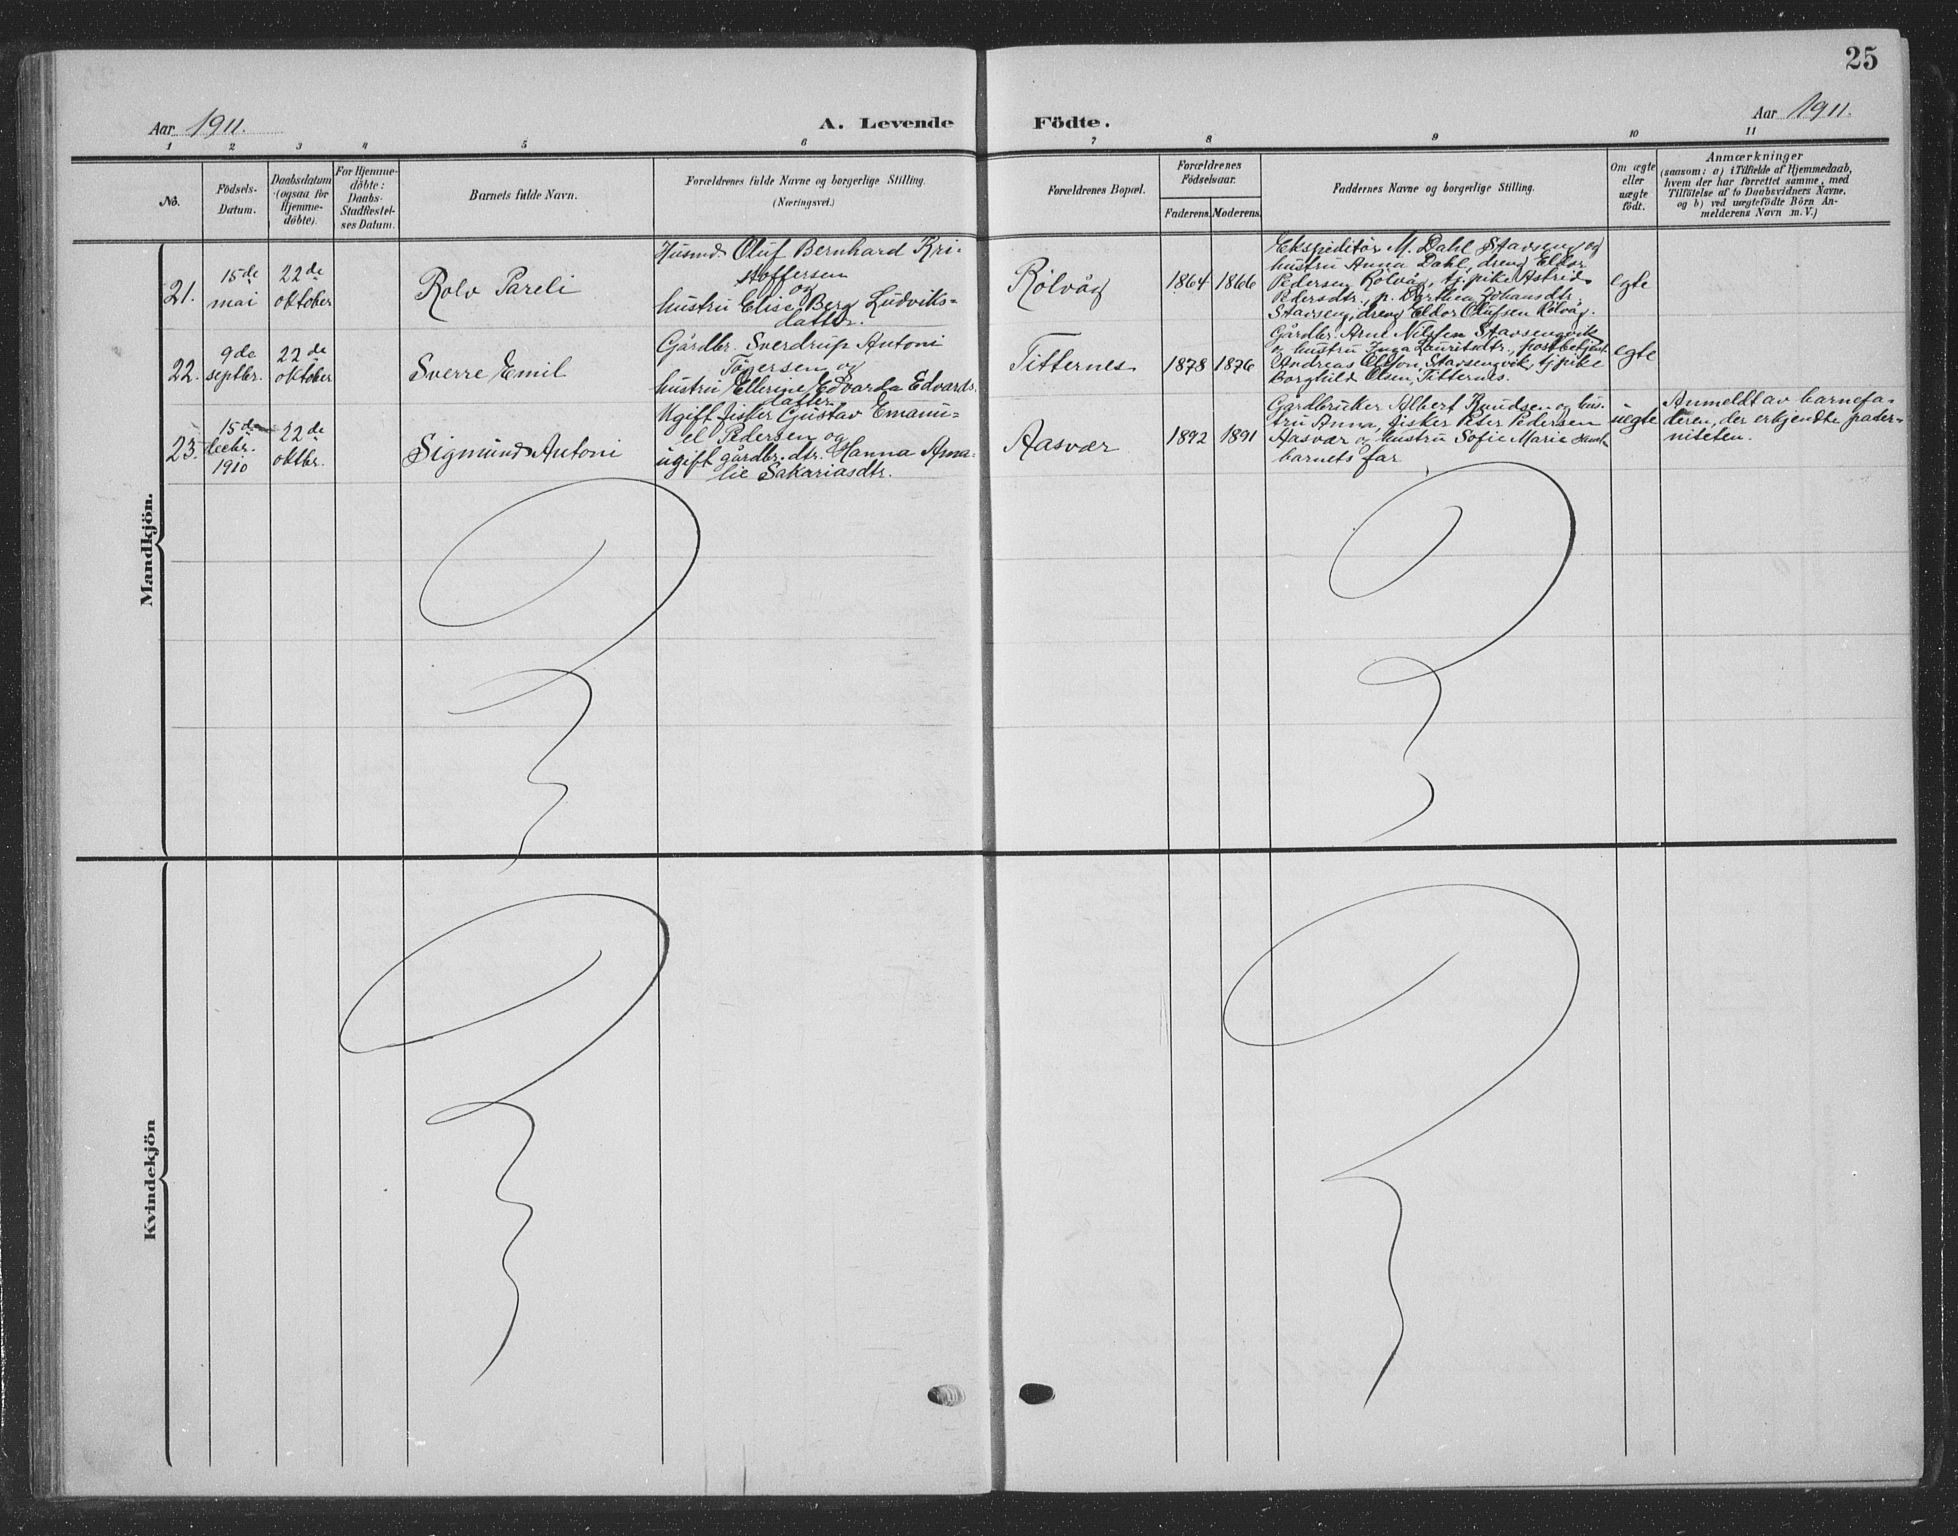 25
Aar 1911.
A. Levende Födte.
Aar 1911.
1 2 3 4 5 6 7 8 9 10 11
No.
Födsels-
Datum.
Daabsdatum
(ogsaa for
Hjemme-
döbte).
For Hjemme-
döbte:
Daabs-
Stadfæstel-
ses Datum.
Barnets fulde Navn.
Forældrenes fulde Navne og borgerlige Stilling.
(Næringsvei.)
Forældrenes Bopæl.
Forældrenes
Födselsaar.
Faderens. Moderens.
Faddernes Navne og borgerlige Stilling.
Om ægte
eller
uægte
födt.
Anmærkninger
(saasom: a) i Tilfælde af Hjemmedaab,
hvem der har forrettet samme, med
Tilföielse af to Daabsvidners Navne,
og b) ved uægtefödte Börn An-
melderens Navn m. V.)
Mandkjön.
21.
15de
mai
22de
oktober
Rolv Pareli
Husmd. Oluf Bernhard Kri-
stoffersen
og
hustru Elise Berg Ludviks-
datter.
Rölvåg
1864 1866
Ekspeditör M. Dahl Stavseng og
hustru Anna Dahl, dreng Eldor
Pedersen Rölvåg, tj. pike Astrid
Pedersdtr., p. Dorthea Johansdtr.
Stavseng, dreng Eldor Olufsen Rölvåg.
egte
22.
9de
septbr.
22de
oktober
Sverre Emil
Gårdbr. Sverdrup Antoni
Tögersen og
hustru Ellerine Edvarda Edvards-
datter
Titternes
1878 1876
Gårdbr. Arne Nilssen Stavsengvik
og hustru Inga Lauritsdtr., postbetjent
Andreas Olsson, Stavsengvik, tj. pike
Borghild Olsen, Titternes.
egte
23.
15de
decbr.
1910
22de
oktbr.
Sigmund Antoni
Ugift fisker Gustav Emanu-
el Pedersen og
ugift gårdbr. dtr. Hanna Ama-
lie Sakariasdtr.
Aasvær
1892 1891
Gårdbruker Albert Knudsen og hus-
tru Anna, fisker Peter Pedersen
Aasvær og hustru Sofie Marie samt
barnets far
uegte
Anmeldt av barnefa-
deren, der erkjendte pater-
niteten.
Kvindekjön